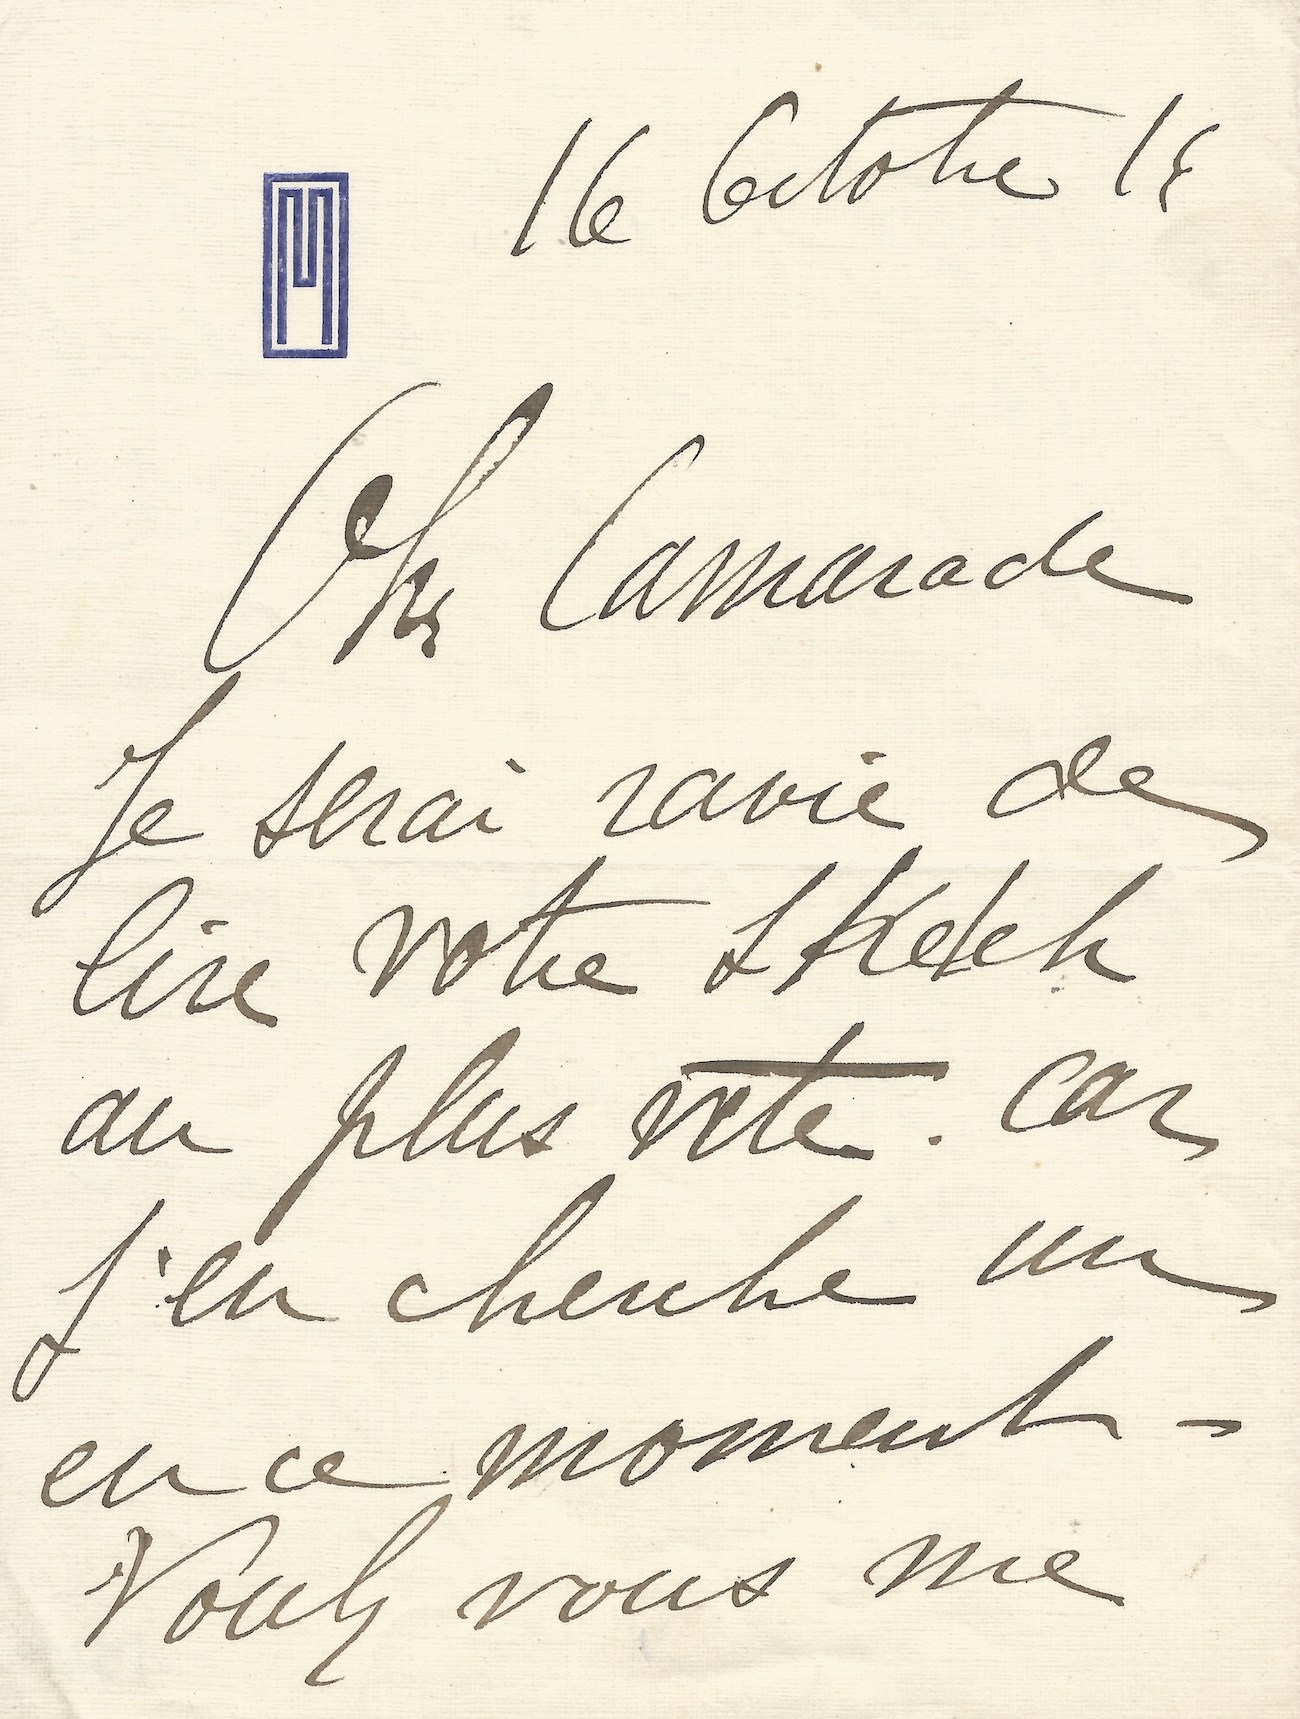 16 Octobre
M
Cher Camarade
Je serai ravie de
lire votre sketch
au plus vite. car
j'en cherche un
en ce moment -
Voulez vous me